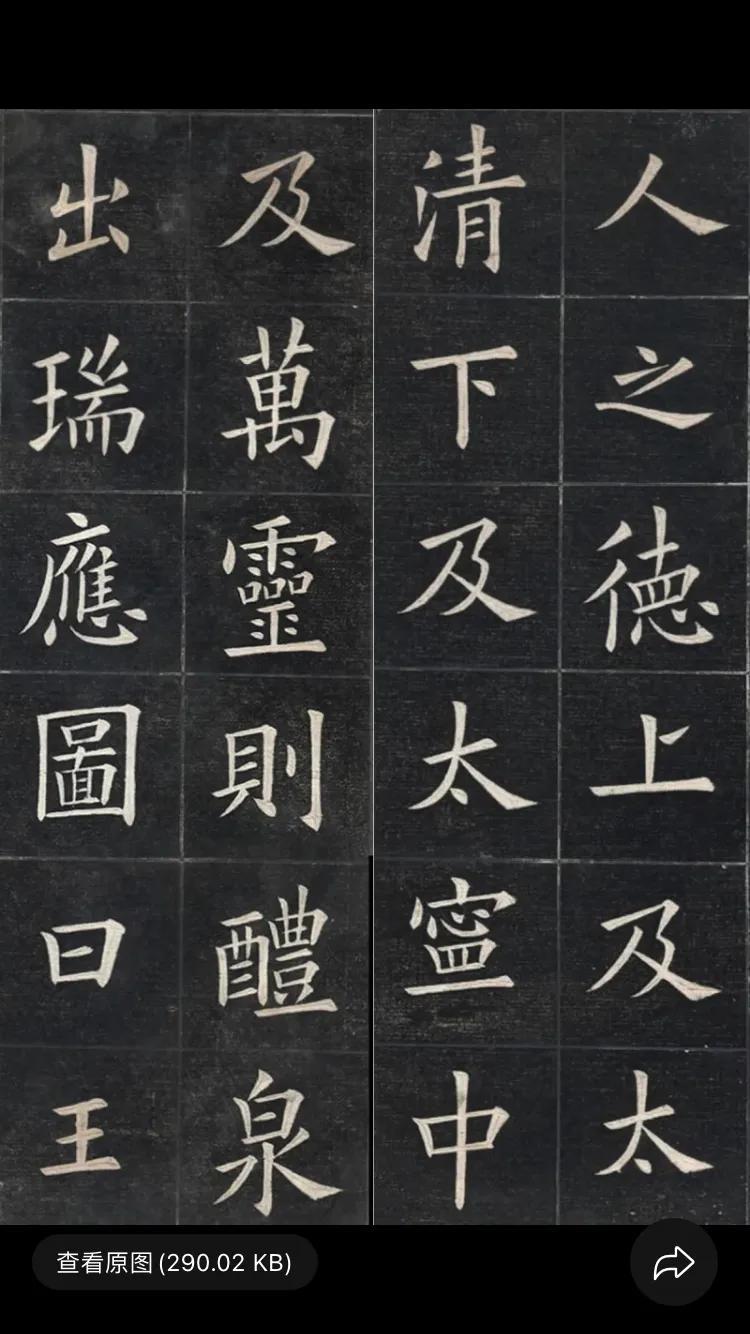 人之德上及太
清下及太寧中
及萬靈則醴泉
出瑞應圖曰王
查看原图(290.02 KB)